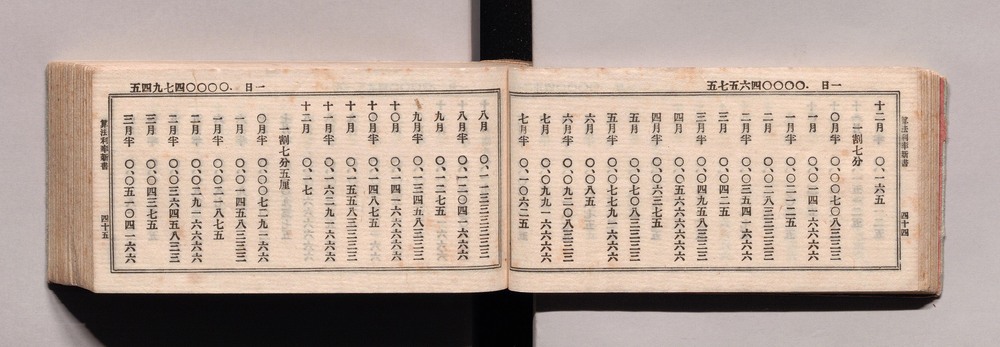 一日 、〇〇〇〇四六五七五
算法利率新書
四十四
十二月 〇、一六五
一割七分
〇月半 〇、〇〇七〇八三三三
一月 〇、〇一四一六六六六
一月半 〇、〇二一二五
二月 〇、〇二八三三三三三
二月半 〇、〇三五四一六六六
三月 〇、〇四二五
三月半 〇、〇四九五八三三三
四月 〇、〇五六六六六六六
四月半 〇、〇六三七五
五月 〇、〇七〇八三三三三
五月半 〇、〇七七九一六六六
六月 〇、〇八五
六月半 〇、〇九二〇八三三三
七月 〇、〇九九一六六六六
七月半 〇、一〇六二五
一日 、〇〇〇〇四七九四五
八月 〇、一一三三三三三三
八月半 〇、一二〇四一六六六
九月 〇、一二七五
九月半 〇、一三四五八三三三
十月 〇、一四一六六六六六
十月半 〇、一四八七五
十一月 〇、一五五八三三三三
十一月半 〇、一六二九一六六六
十二月 〇、一七
一割七分五厘
〇月半 〇、〇〇七二九一六六
一月 〇、〇一四五八三三三
一月半 〇、〇二一八七五
二月 〇、〇二九一六六六六
二月半 〇、〇三六四五八三三
三月 〇、〇四三七五
三月半 〇、〇五一〇四一六六
算法利率新書
四十五